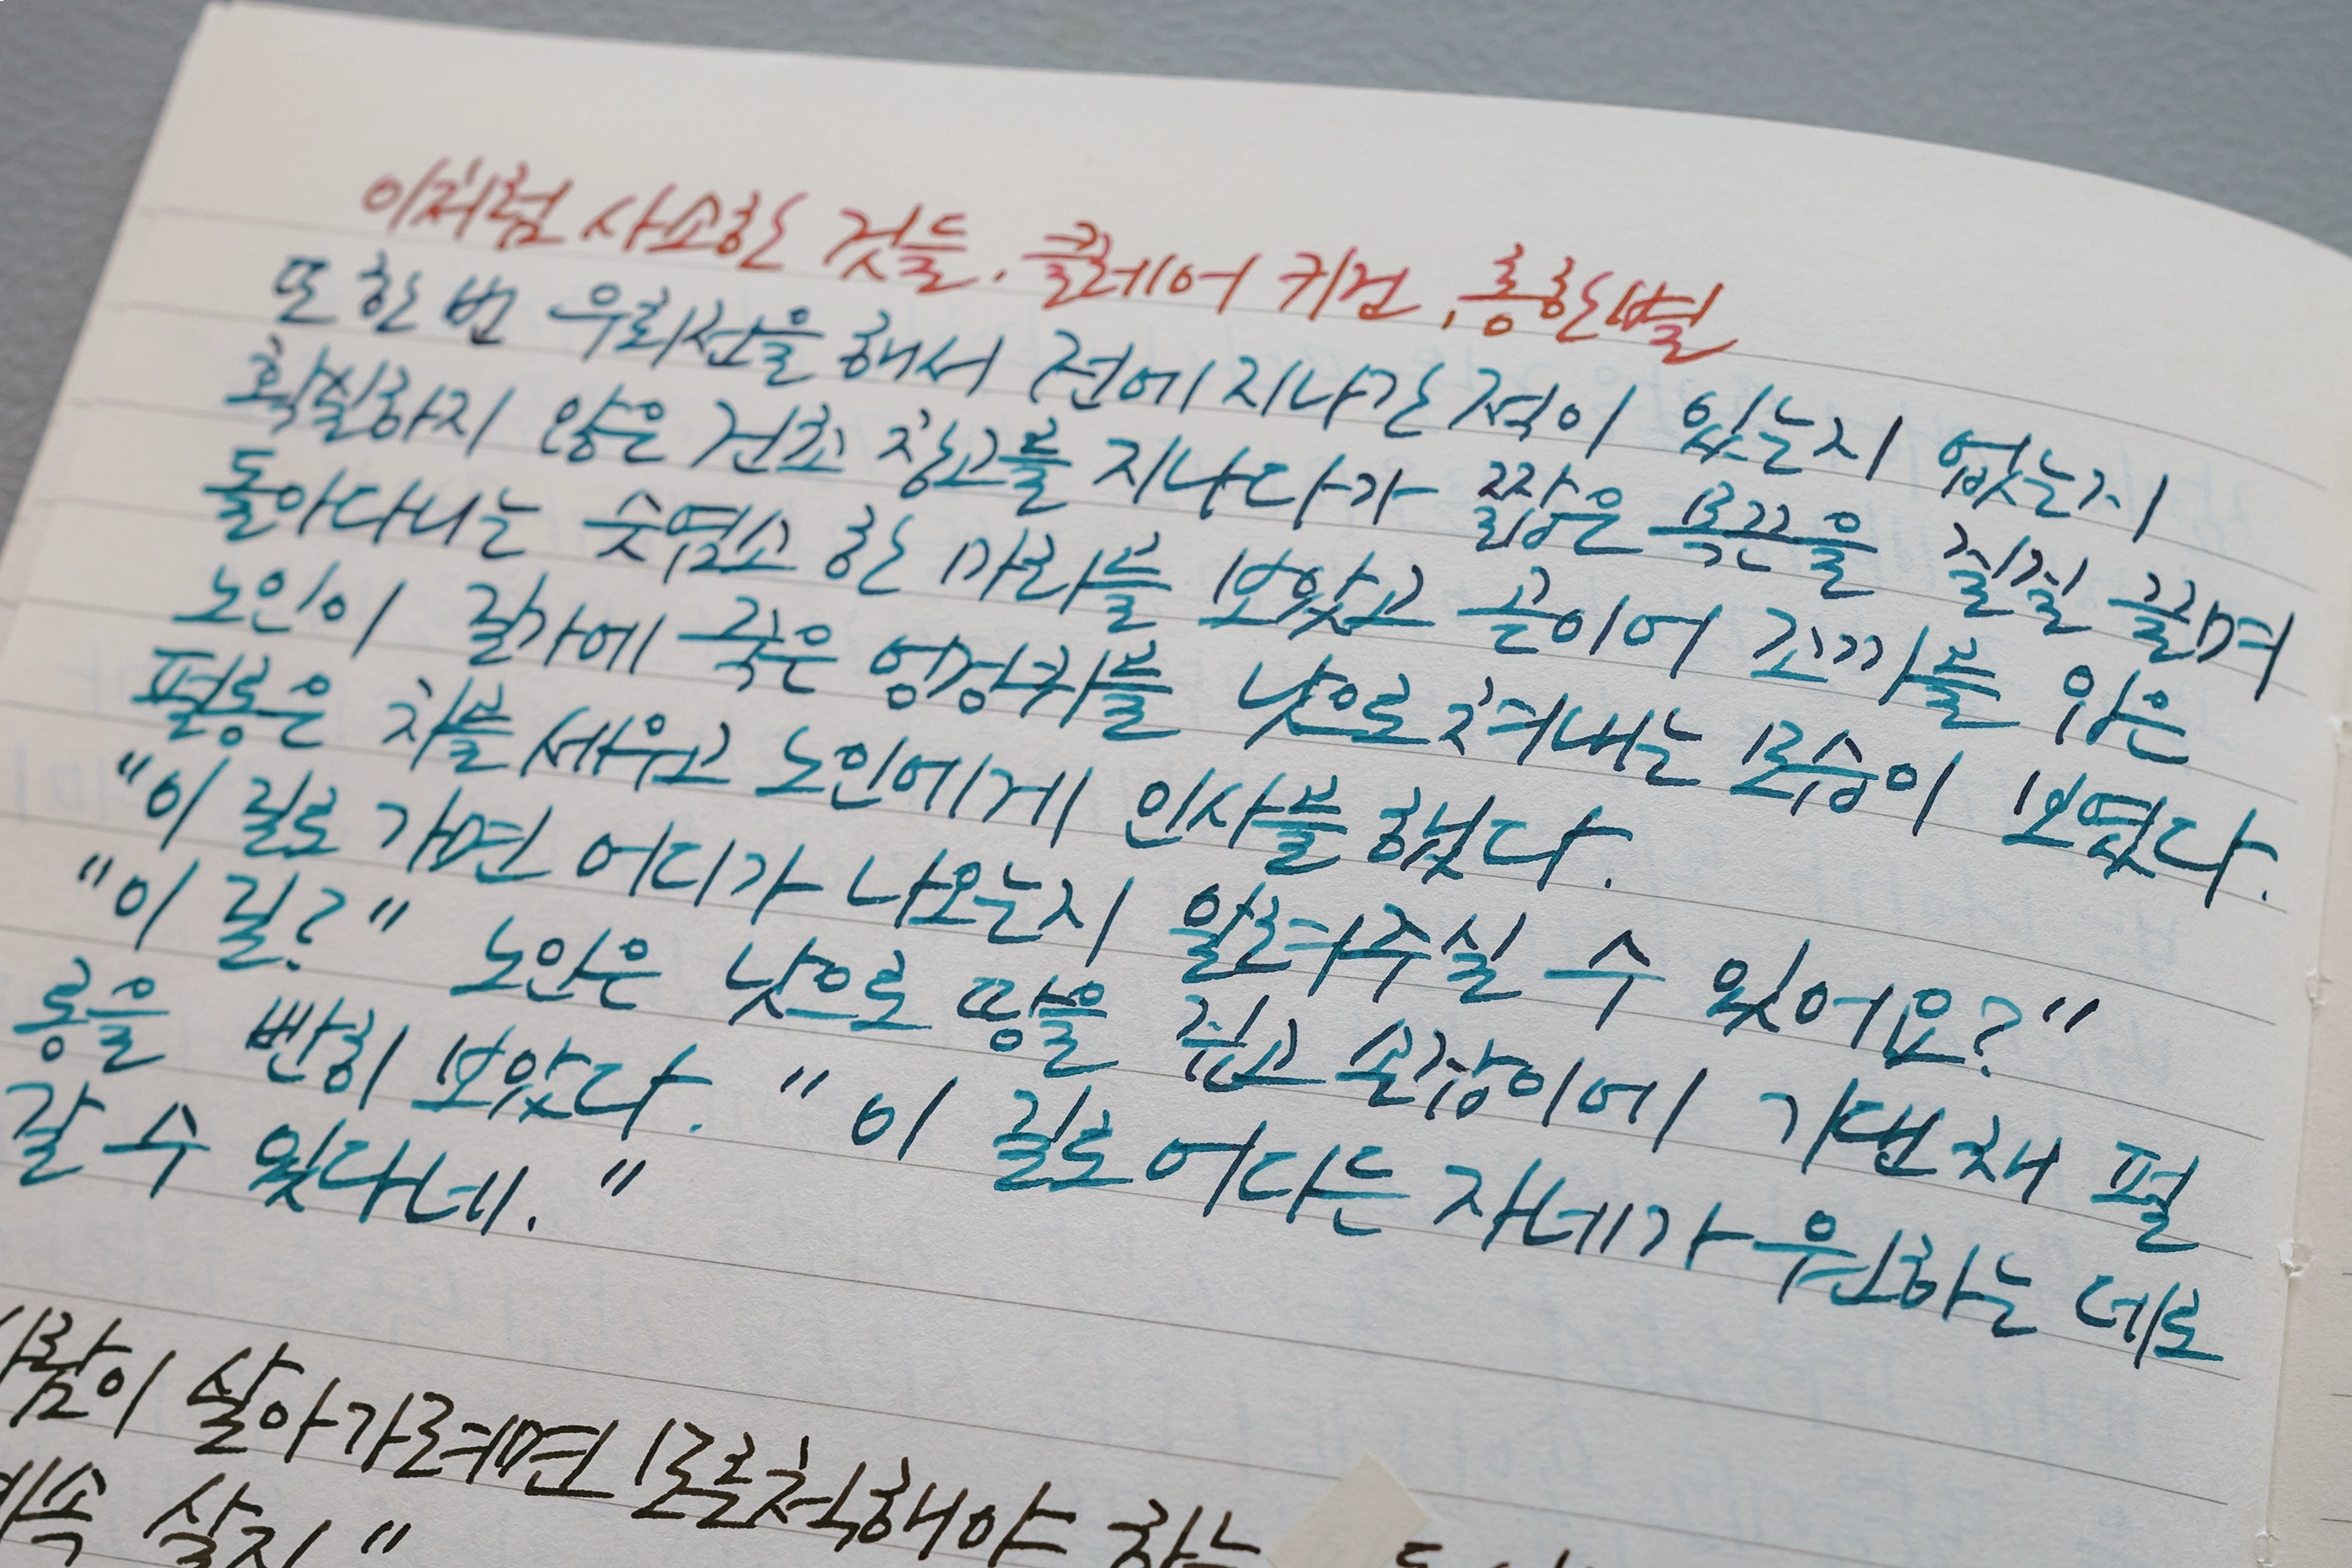 이처럼 사소한 것들. 클레어 키건, 홍한별
또 한 번 우회전을 해서 전에 지나간 적이 있는지 없는지
확실하지 않은 건초 창고를 지나다가 짧은 목끈을 질질 끌며
돌아다니는 숫염소 한 마리를 보았고 곧이어 조끼를 입은
노인이 길가에 죽은 엉겅퀴를 낫으로 쳐내는 모습이 보였다.
펄롱은 차를 세우고 노인에게 인사를 했다.
"이 길로 가면 어디가 나오는지 알려주실 수 있어요?"
"이 길?" 노인은 낫으로 땅을 짚고 손잡이에 기댄 채 펄
롱을 빤히 보았다. "이 길로 어디든 자네가 원하는 데로
갈 수 있다네."
람이 살아가려면 모른 척해야 하는
속 살지"